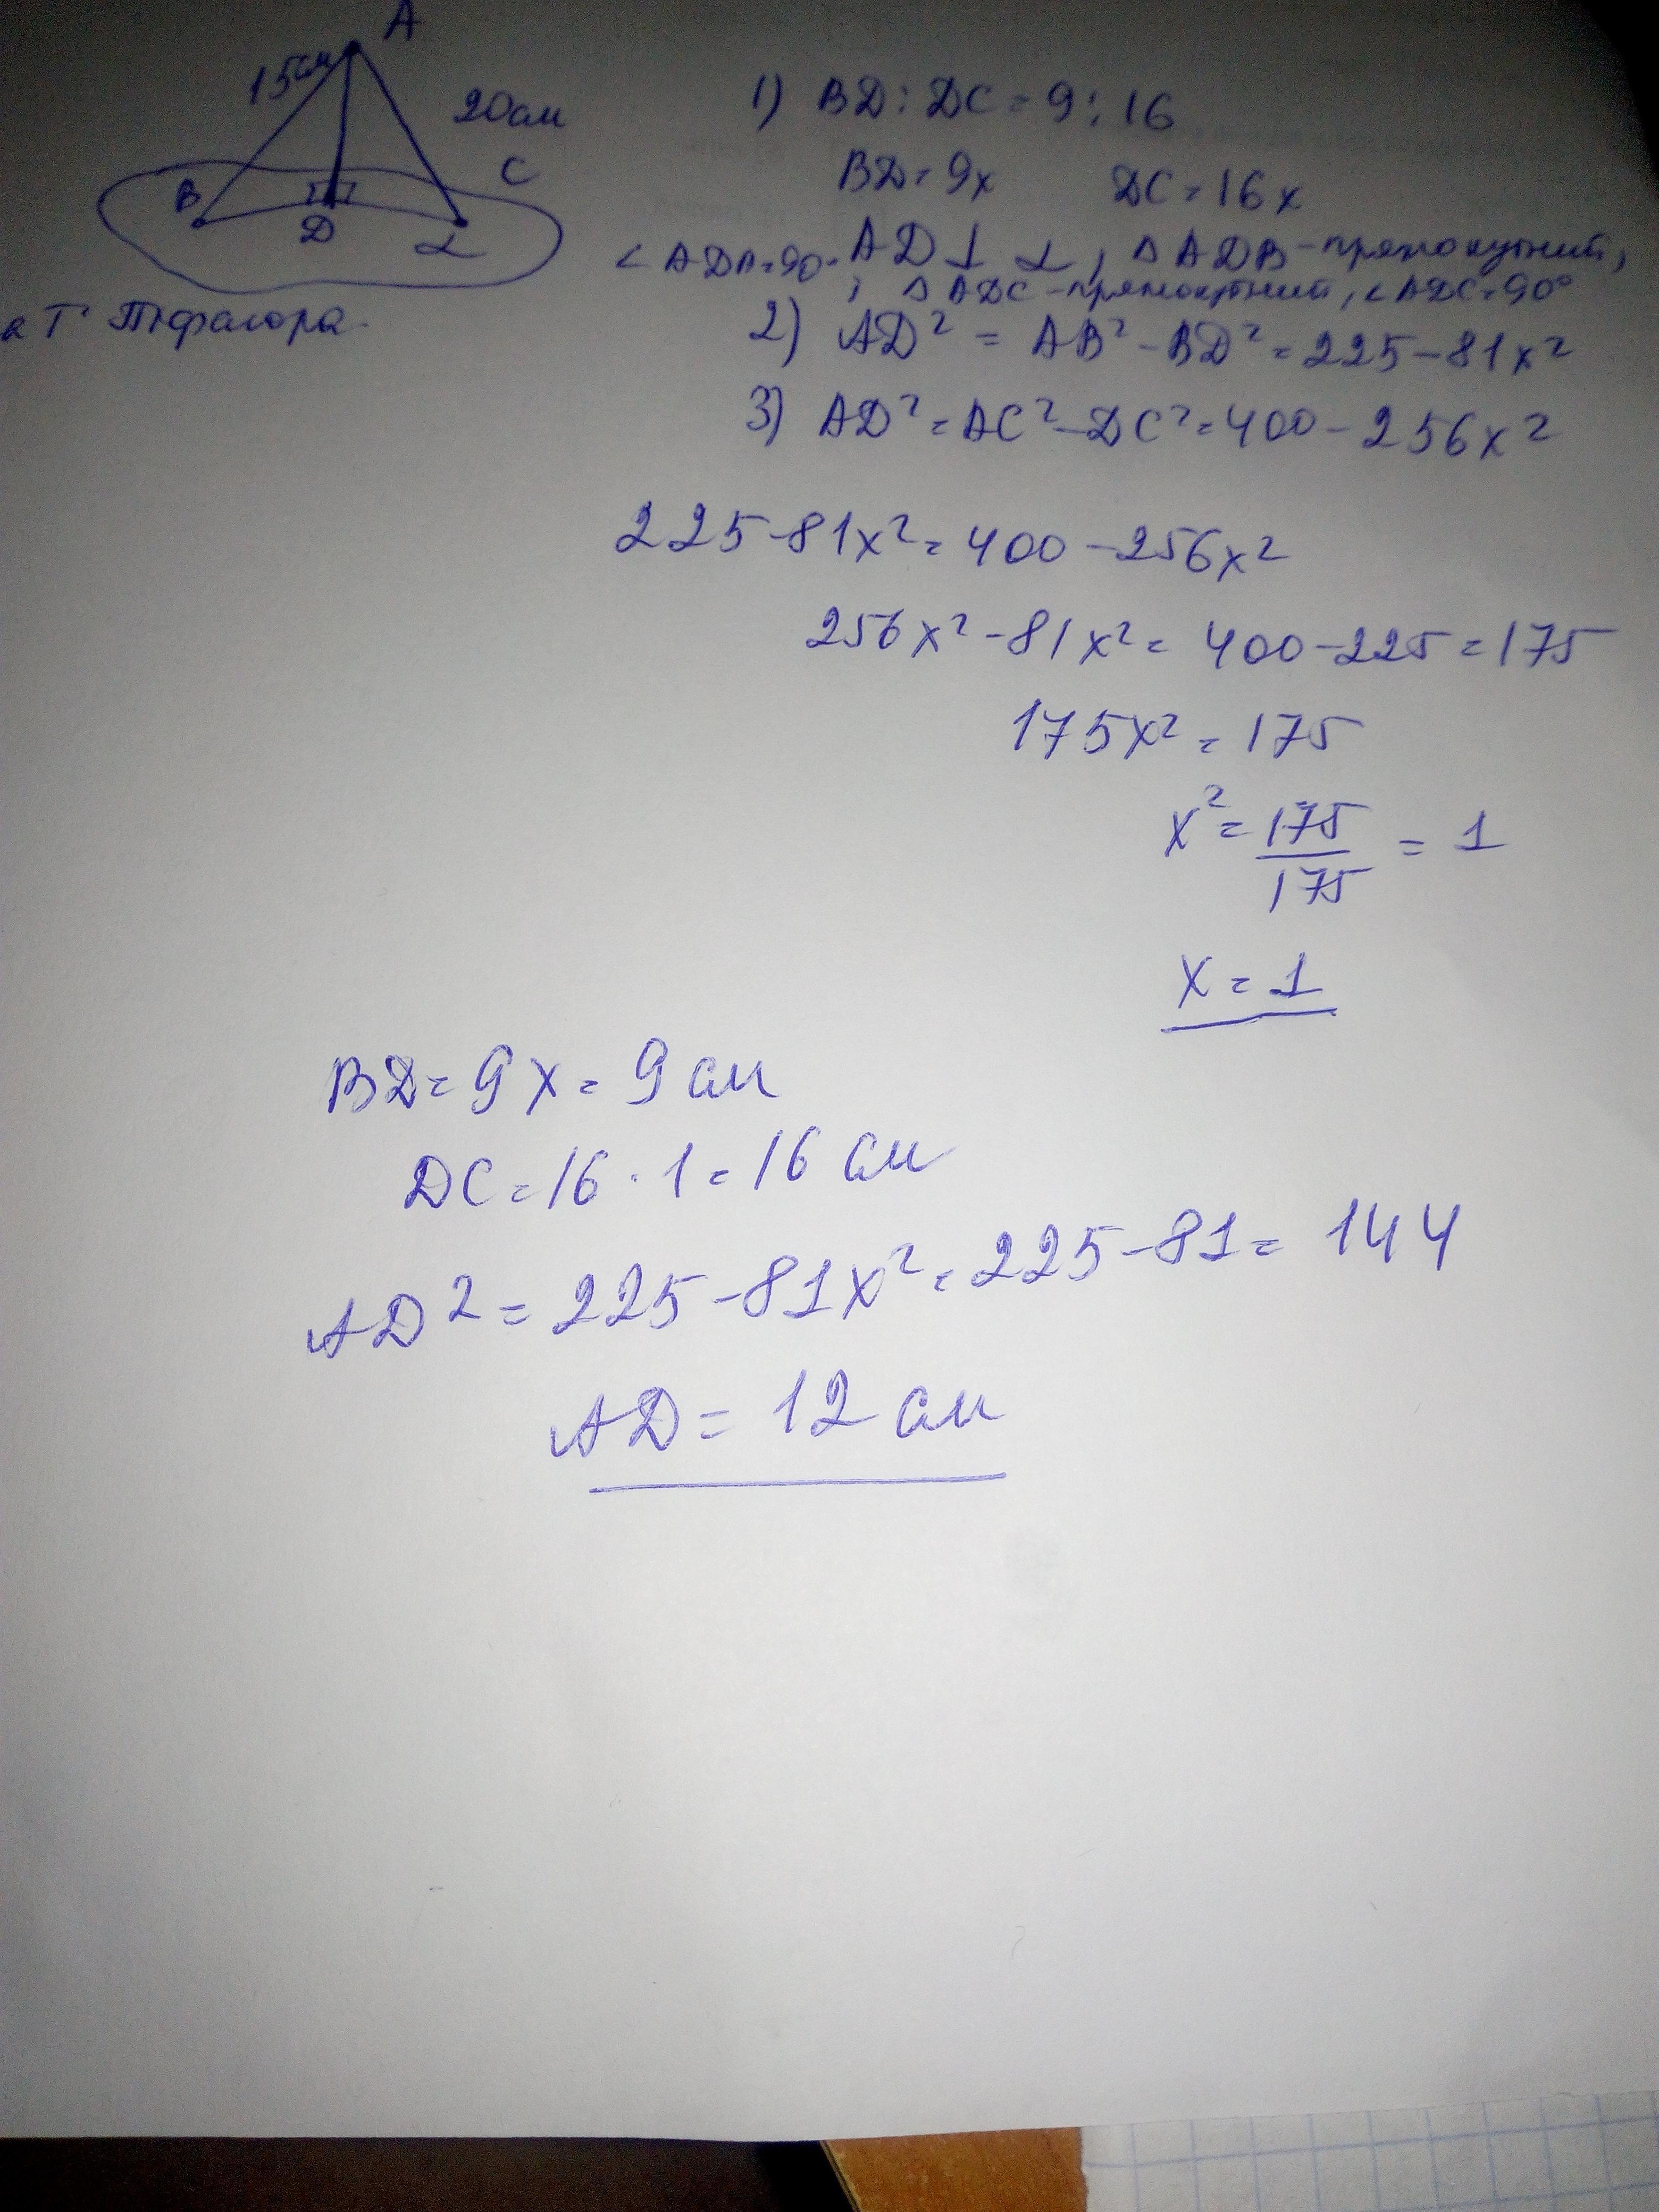 A
15см
20см
B
D
C
α
1) BD : DC = 9 : 16
BD = 9x DC = 16x
AD ⊥ α, △ ADB - прямокутний,
; △ ADC - прямокутний, ∠ ADC = 90°
Т. Піфагора.
2) AD² = AB² - BD² = 225 - 81x²
3) AD² = AC² - DC² = 400 - 256x²
225 - 81x² = 400 - 256x²
256x² - 81x² = 400 - 225 = 175
175x² = 175
x² = 175/175 = 1
x = 1
BD = 9x = 9 см
DC = 16 · 1 = 16 см
AD² = 225 - 81x² = 225 - 81 = 144
AD = 12 см